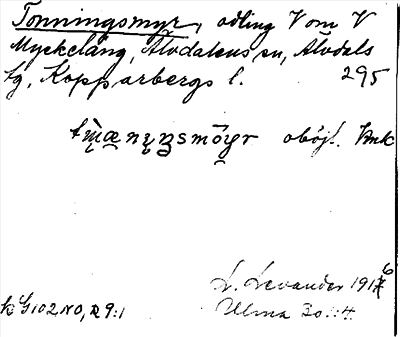 Tonningsmyr, odling V om V
Myckelång, Älvdalens sn, Älvdals
tg, Kopparbergs l. 295
oböjl.
L. Levander 1916
Ulma 30:14.
k G 102 NO, R 9:1